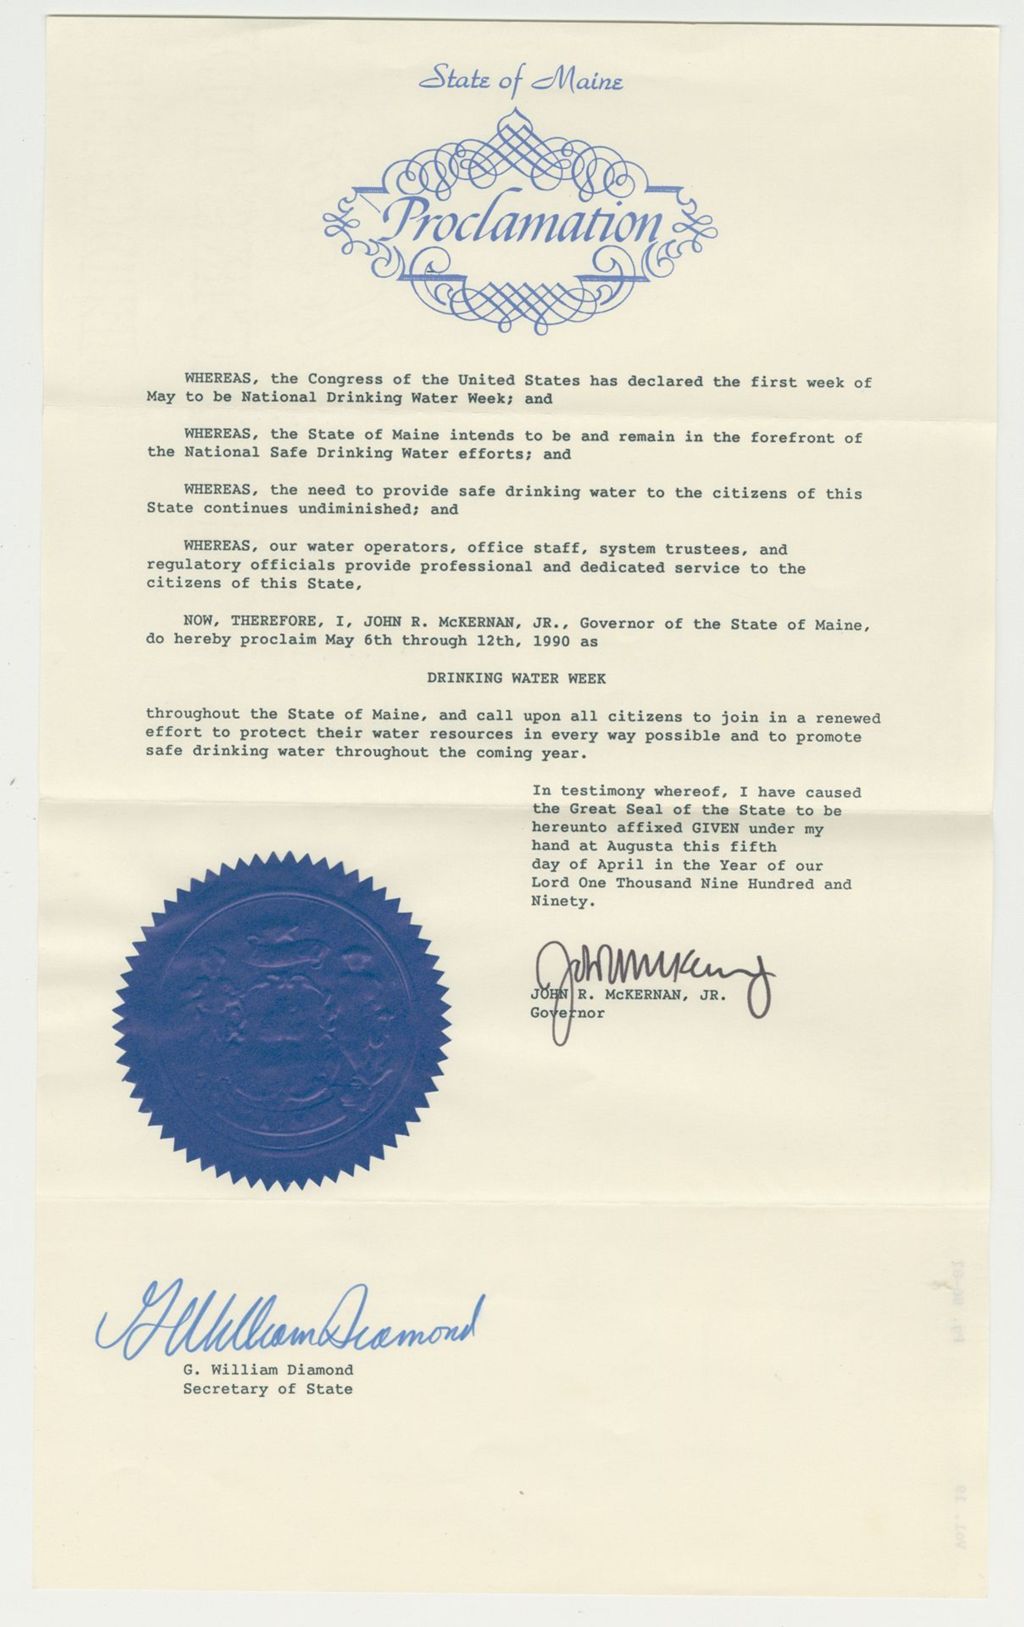 State of Maine
Proclamation
WHEREAS, the Congress of the United States has declared the first week of
May to be National Drinking Water Week; and
WHEREAS, the State of Maine intends to be and remain in the forefront of
the National Safe Drinking Water efforts; and
WHEREAS, the need to provide safe drinking water to the citizens of this
State continues undiminished; and
WHEREAS, our water operators, office staff, system trustees, and
regulatory officials provide professional and dedicated service to the
citizens of this State,
NOW, THEREFORE, I, JOHN R. McKERNAN, JR., Governor of the State of Maine,
do hereby proclaim May 6th through 12th, 1990 as
DRINKING WATER WEEK
throughout the State of Maine, and call upon all citizens to join in a renewed
effort to protect their water resources in every way possible and to promote
safe drinking water throughout the coming year.
In testimony whereof, I have caused
the Great Seal of the State to be
hereunto affixed GIVEN under my
hand at Augusta this fifth
day of April in the Year of our
Lord One Thousand Nine Hundred and
Ninety.
John R McKernan Jr
JOHN R. McKERNAN, JR.
Governor
G William Diamond
G. William Diamond
Secretary of State
Vol. 19